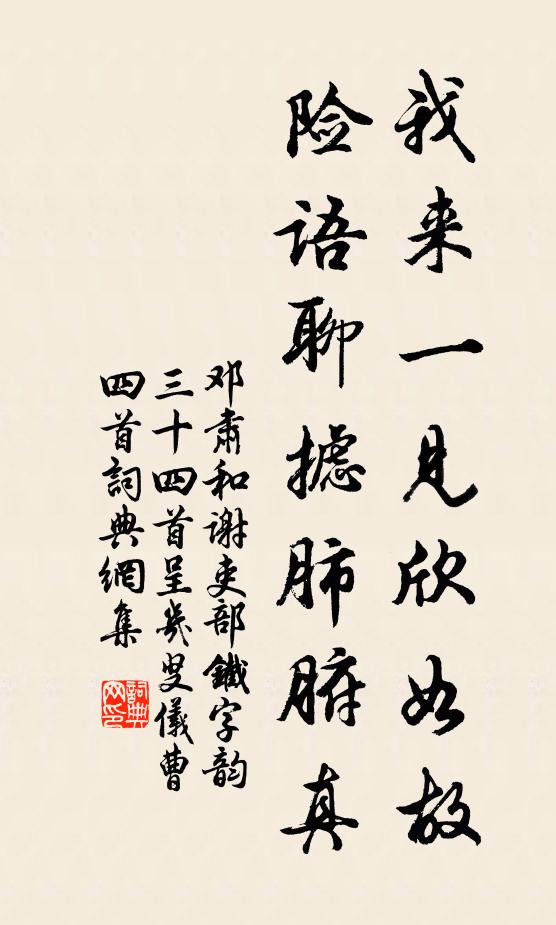 我来一见欣如故
险语聊摅肺腑真
邓肃和谢吏部鐵字韵
三十四首呈幾叟儀曹
四首詞典網集
詞典网印